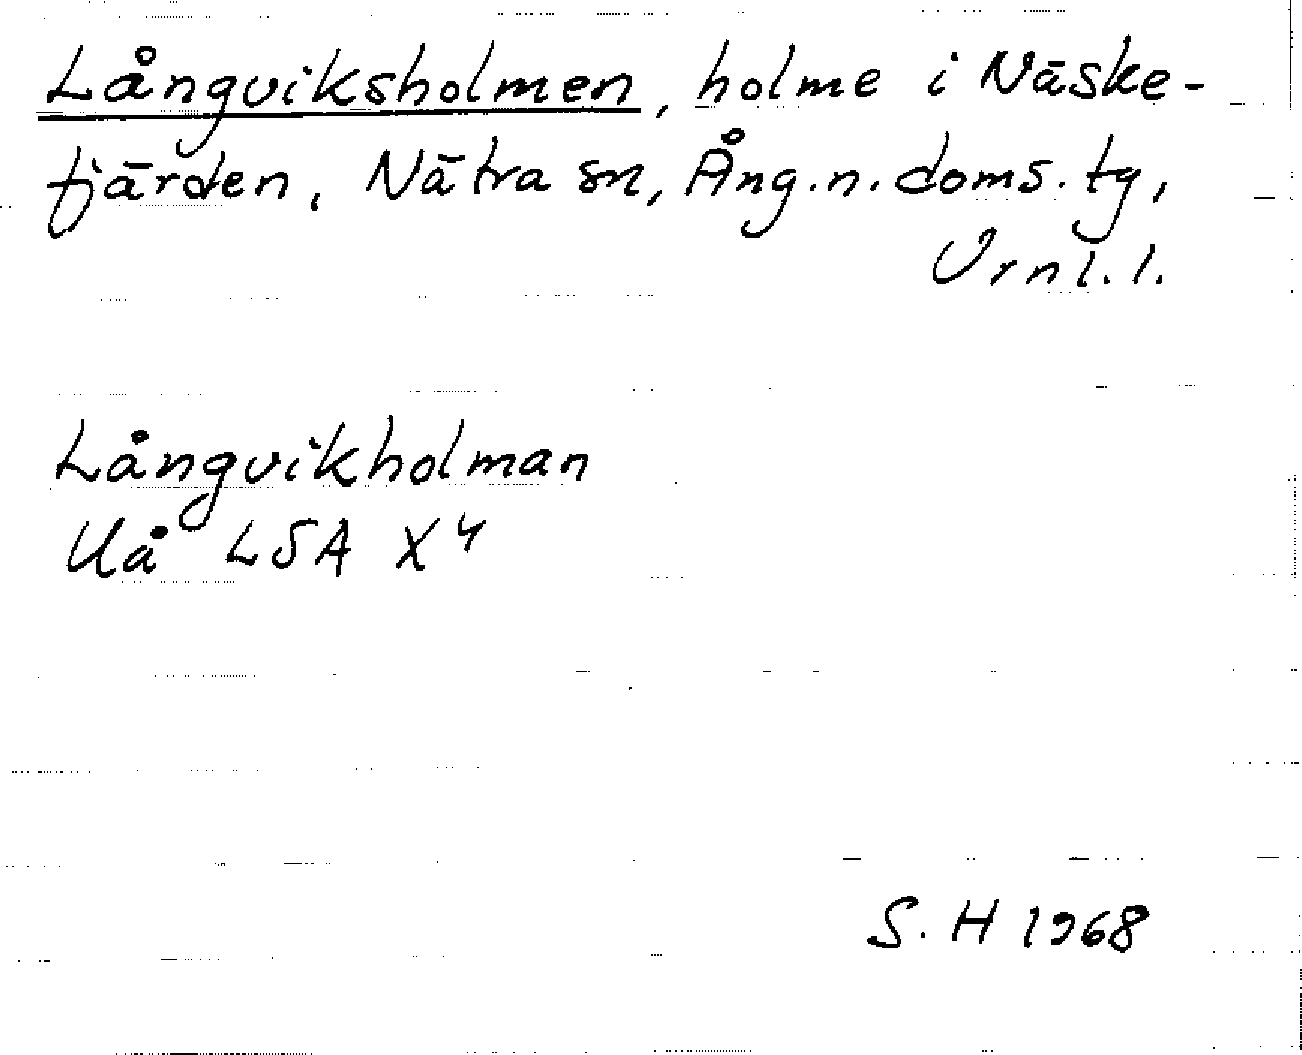 Långviksholmen, holme i Näske-
fjärden, Nätra sn, Ång.n.doms.tg,
Vrnl.l.
Långvikholman
Uå LSA X4
S.H 1968